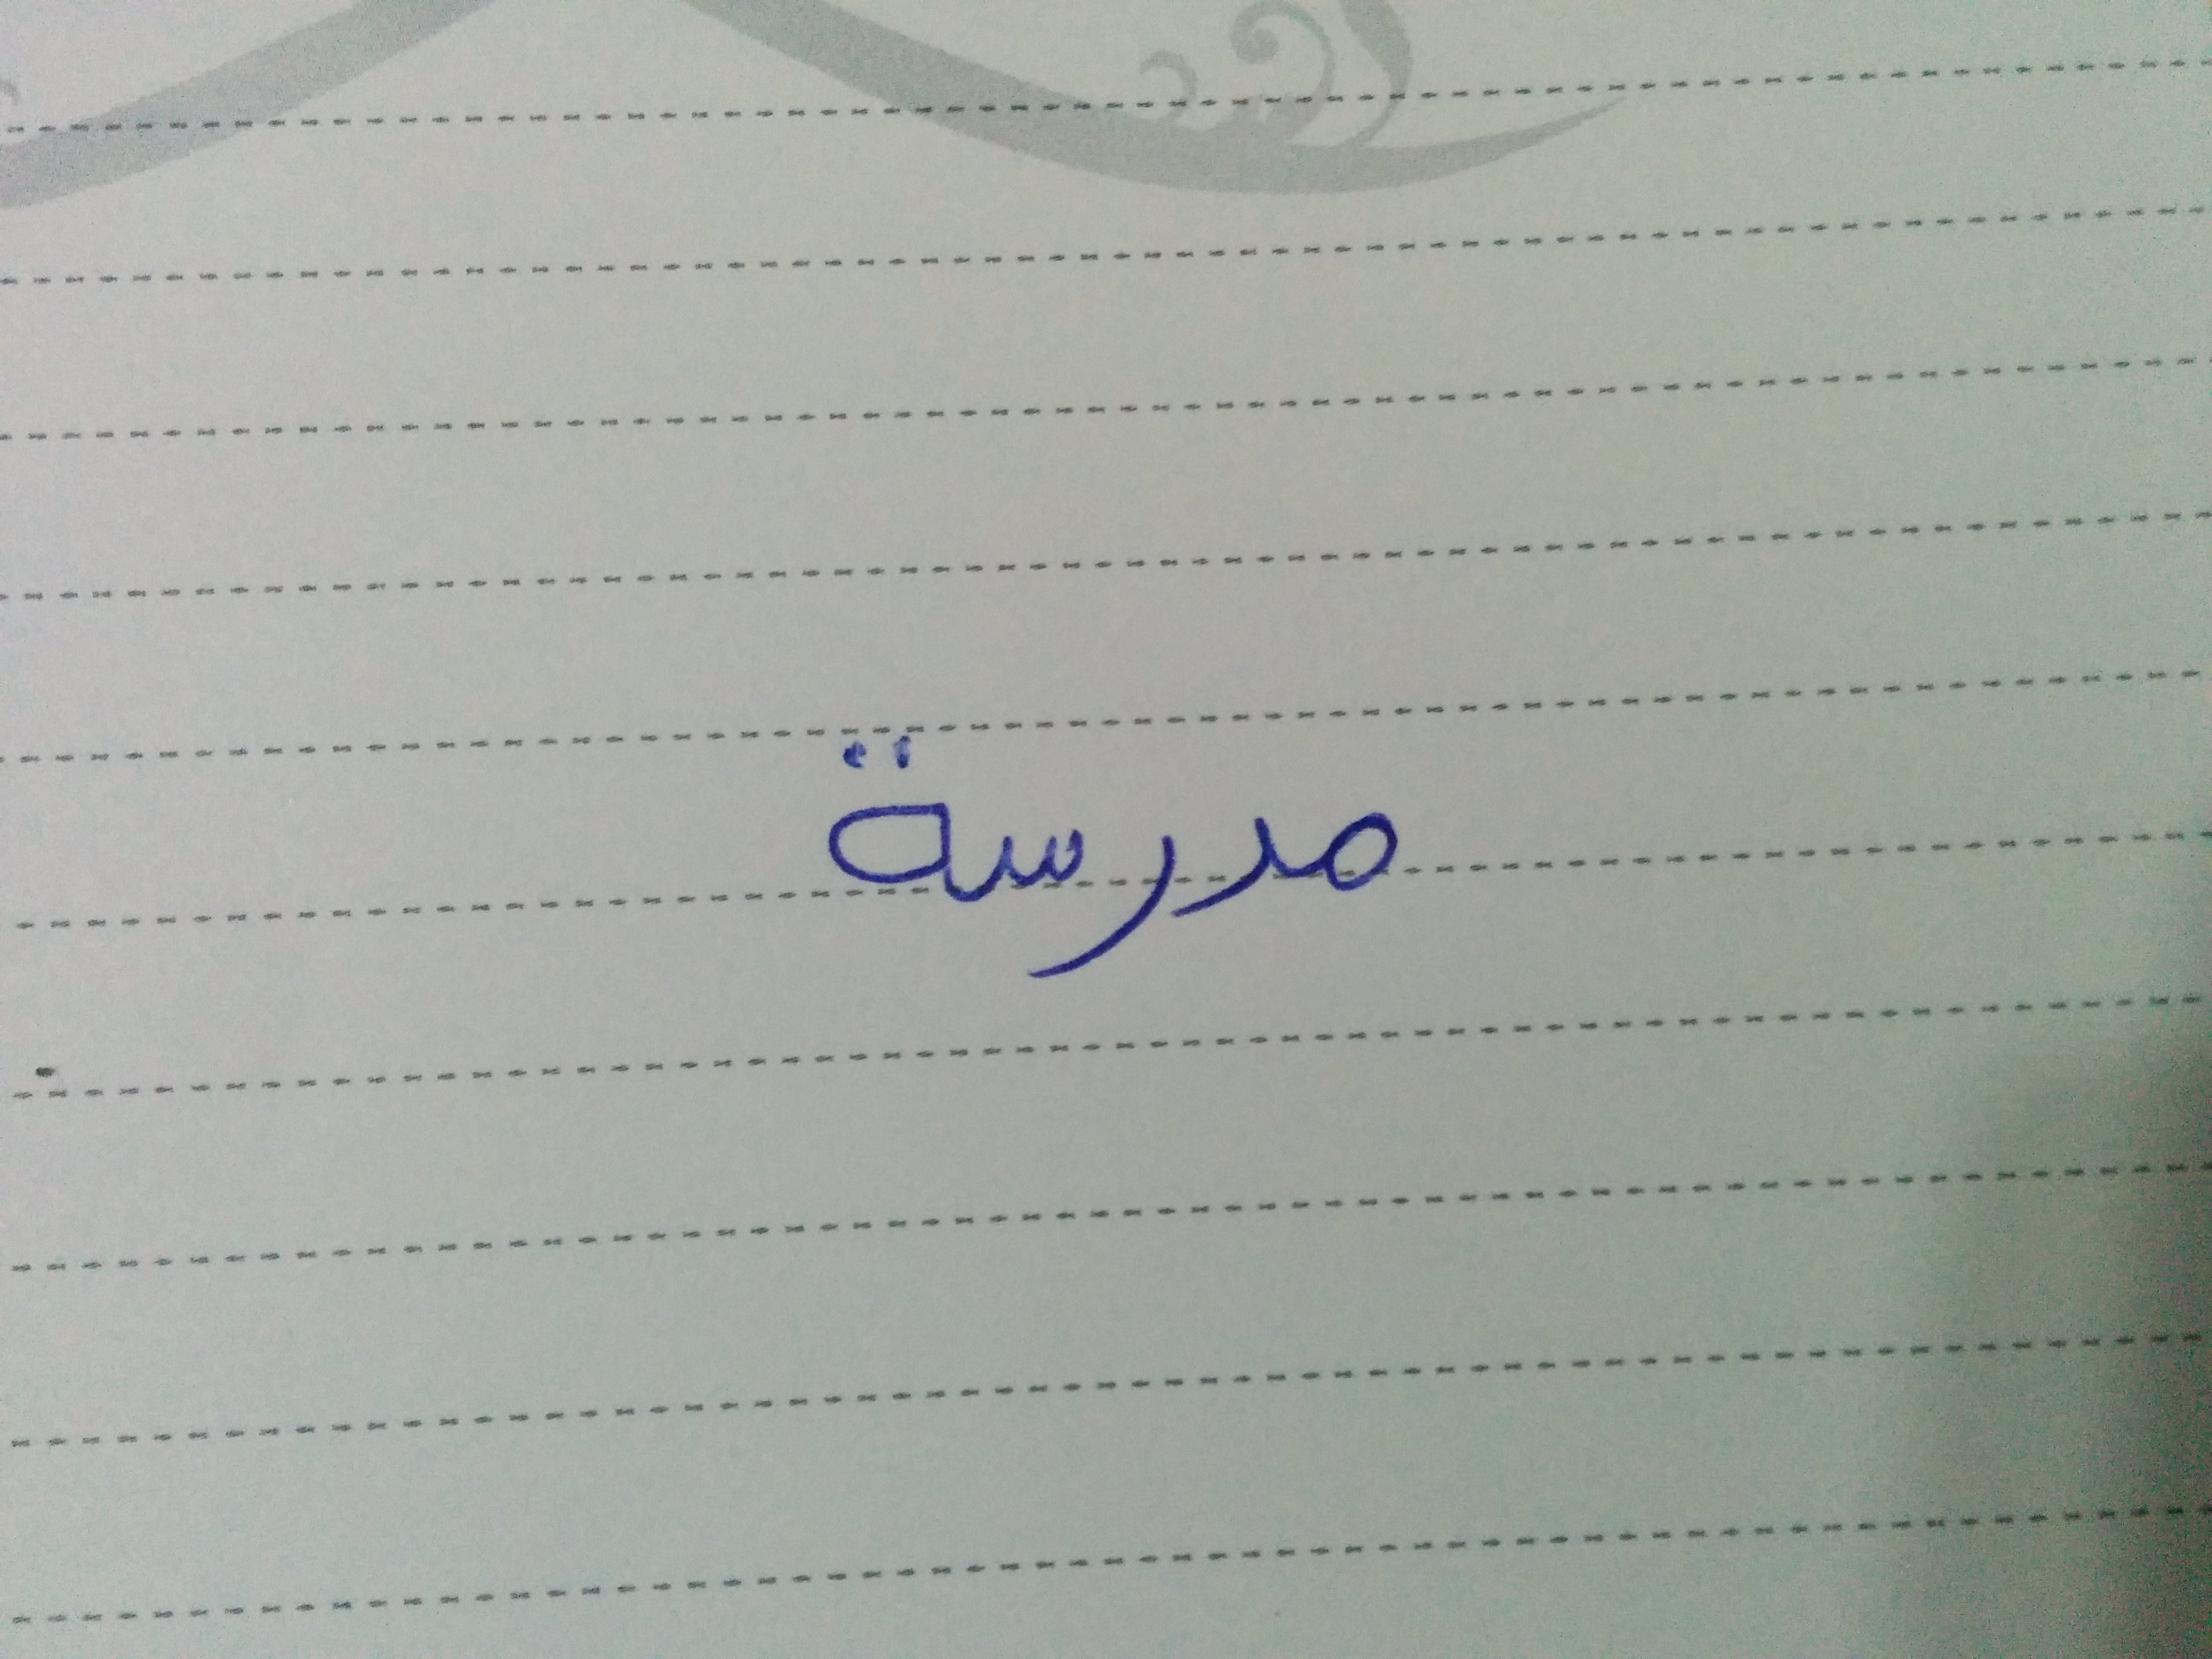 مدرسة